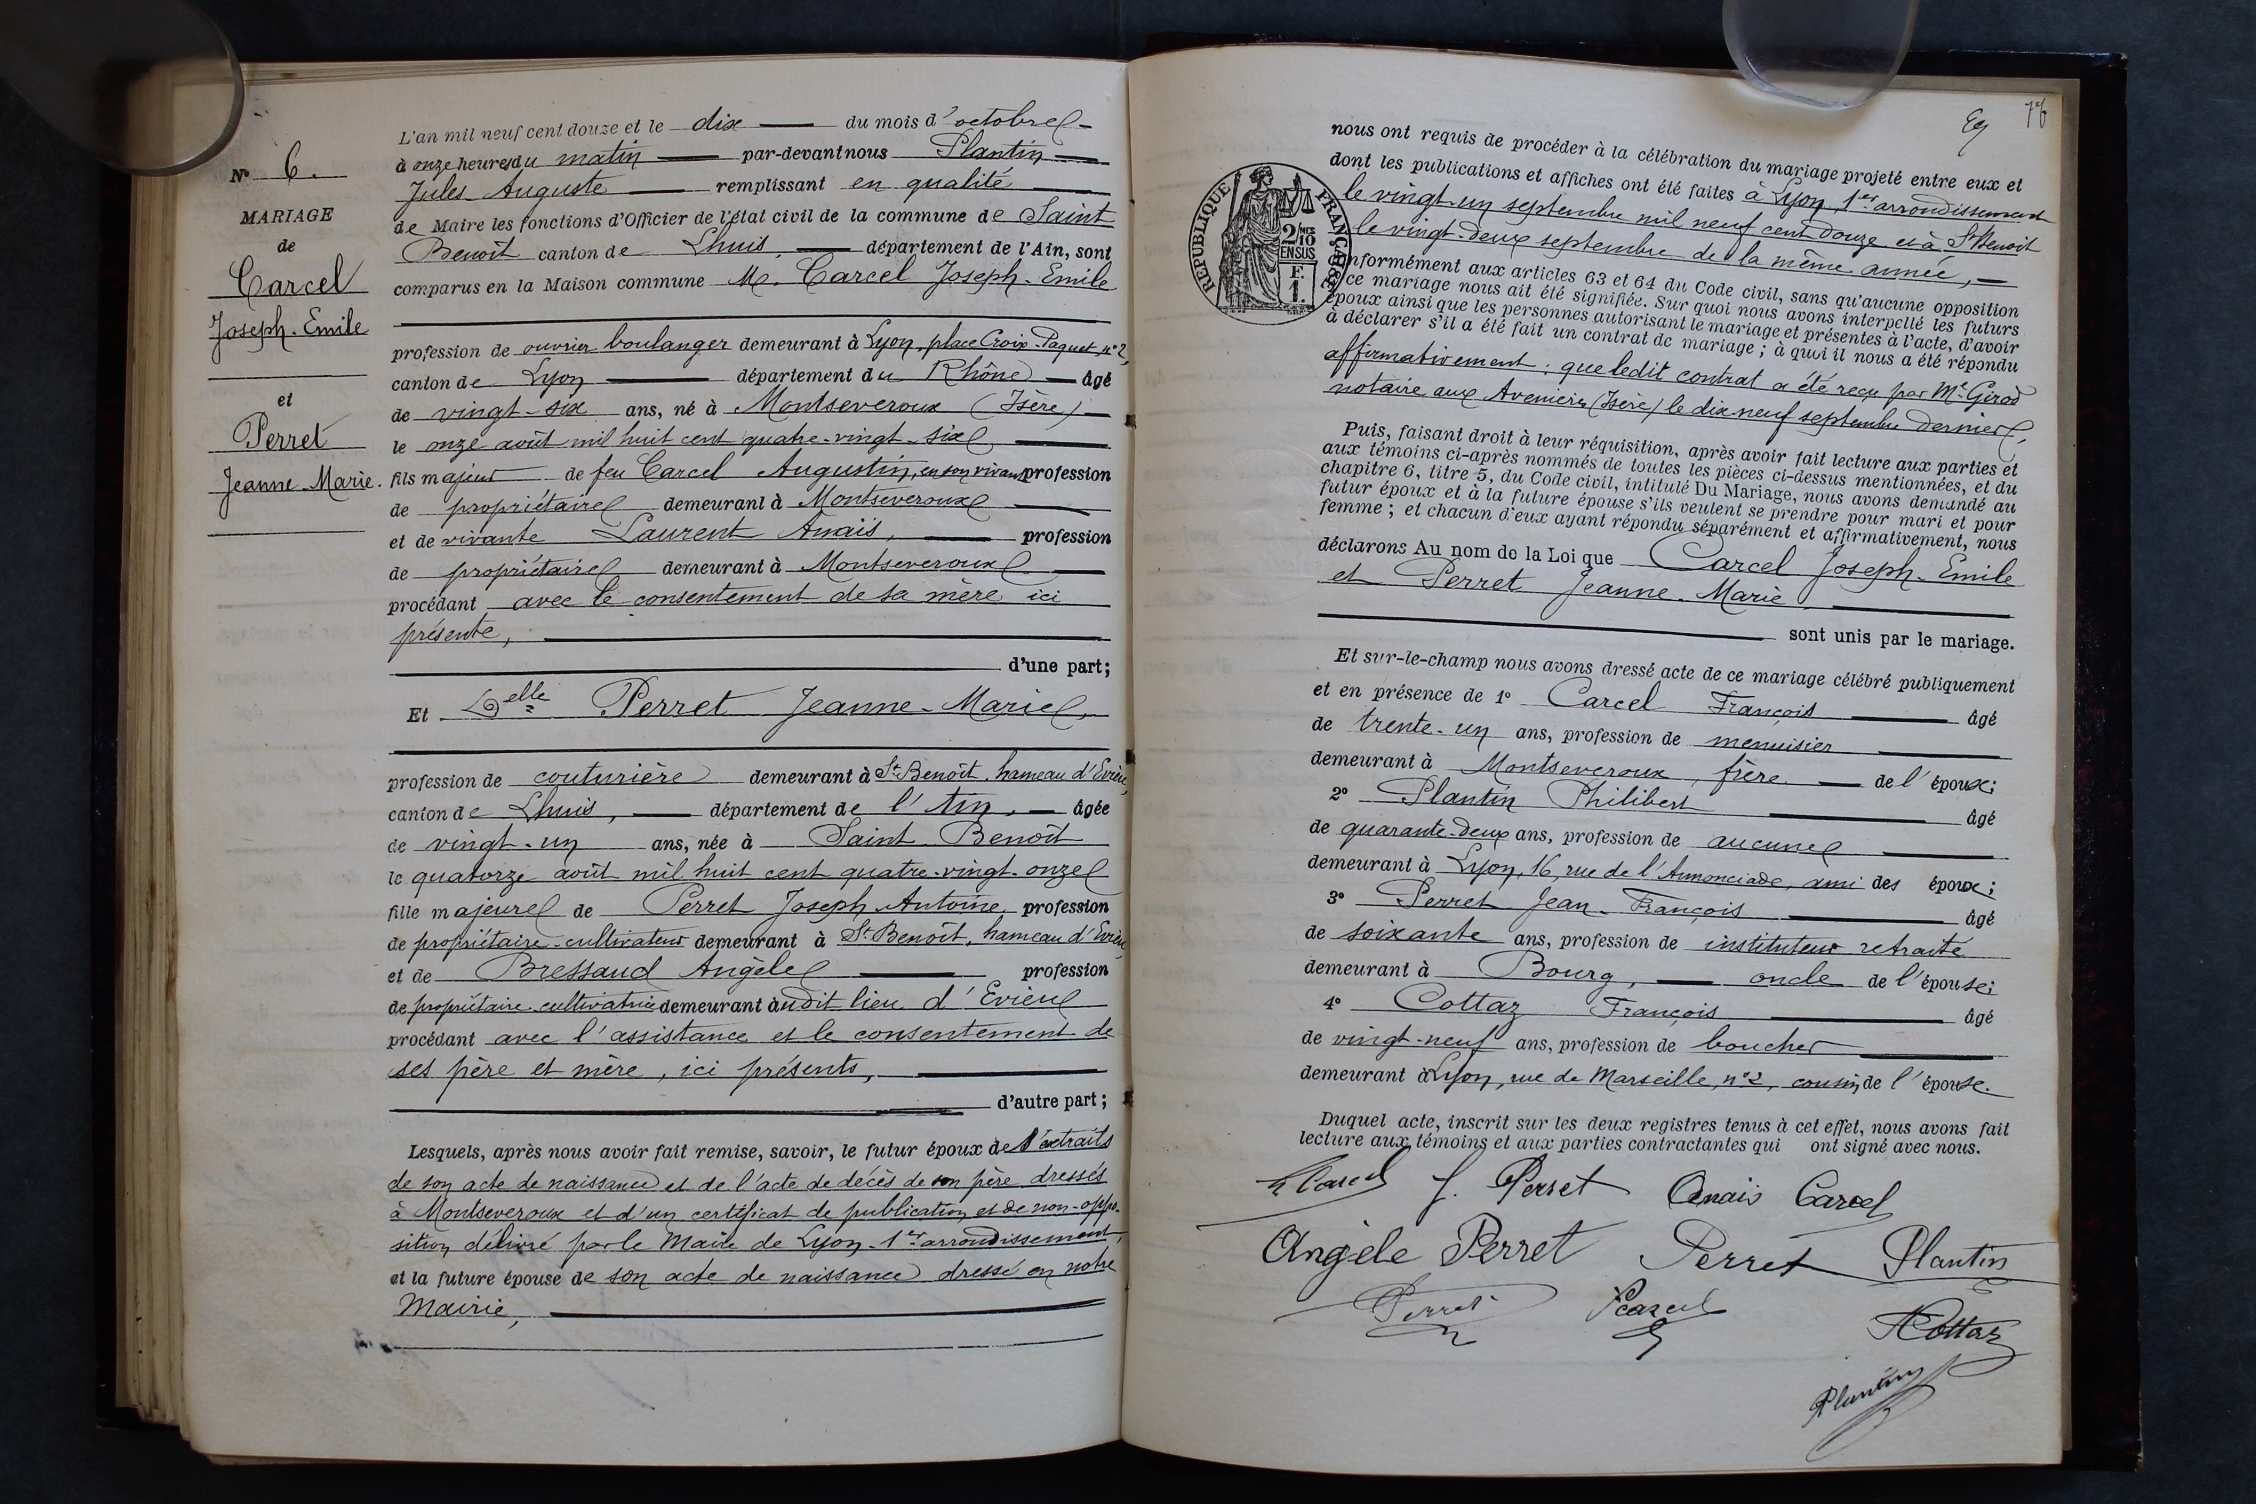 N° 6.
MARIAGE
de
Carcel
Joseph-Emile
et
Perret
Jeanne-Marie.
L'an mil neuf cent douze et le dix du mois d'octobre
à onze heures du matin par-devant nous Plantin
Jules Auguste remplissant en qualité
de Maire les fonctions d'Officier de l'état civil de la commune de Saint
Benoît canton de Lhuis, département de l'Ain, sont
comparus en la Maison commune M. Carcel Joseph-Emile
profession de ouvrier boulanger demeurant à Lyon, place Croix-Paquet, n° 2,
canton de Lyon département du Rhône âgé
de vingt-six ans, né à Montseveroux (Isère)
le onze août mil huit cent quatre-vingt-six
fils majeur de feu Carcel Augustin, en son vivant profession
de propriétaire demeurant à Montseveroux
et de vivante Laurent Anais, profession
de propriétaire demeurant à Montseveroux
procédant avec le consentement de sa mère ici
présente,
d'une part;
Et Delle Perret Jeanne-Marie,
profession de couturière demeurant à St Benoît, hameau d'Evieu,
canton de Lhuis, département de l'Ain, âgée
de vingt-un ans, née à Saint Benoît
le quatorze août mil huit cent quatre-vingt-onze
fille majeure de Perret Joseph Antoine profession
de propriétaire-cultivateur demeurant à St Benoît, hameau d'Evieu,
et de Bressaud Angèle profession
de propriétaire-cultivatrice demeurant audit lieu d'Evieu
procédant avec l'assistance et le consentement de
ses père et mère, ici présents,
d'autre part;
Lesquels, après nous avoir fait remise, savoir, le futur époux des extraits
de son acte de naissance et de l'acte de décès de son père dressés
à Montseveroux et d'un certificat de publication et de non-oppo-
sition délivré par le Maire de Lyon-1er arrondissement,
et la future épouse de son acte de naissance dressé en notre
Mairie,
76
RÉPUBLIQUE FRANÇAISE
2/10
EN SUS
F.
1.
nous ont requis de procéder à la célébration du mariage projeté entre eux et
dont les publications et affiches ont été faites à Lyon, 1er arrondissement
le vingt-un septembre mil neuf cent douze et à St Benoit
le vingt-deux septembre de la même année,
conformément aux articles 63 et 64 du Code civil, sans qu'aucune opposition
à ce mariage nous ait été signifiée. Sur quoi nous avons interpellé les futurs
époux ainsi que les personnes autorisant le mariage et présentes à l'acte, d'avoir
à déclarer s'il a été fait un contrat de mariage; à quoi il nous a été répondu
affirmativement; que ledit contrat a été reçu par Me Girod
notaire aux Avenières (Isère) le dix neuf septembre dernier,
Puis, faisant droit à leur réquisition, après avoir fait lecture aux parties et
aux témoins ci-après nommés de toutes les pièces ci-dessus mentionnées, et du
chapitre 6, titre 5, du Code civil, intitulé Du Mariage, nous avons demandé au
futur époux et à la future épouse s'ils veulent se prendre pour mari et pour
femme; et chacun d'eux ayant répondu séparément et affirmativement, nous
déclarons Au nom de la Loi que Carcel Joseph-Emile
et Perret Jeanne-Marie,
sont unis par le mariage.
Et sur-le-champ nous avons dressé acte de ce mariage célébré publiquement
et en présence de 1° Carcel François âgé
de trente-un ans, profession de menuisier
demeurant à Montseveroux, frère de l'époux;
2° Plantin Philibert âgé
de quarante-deux ans, profession de aucune
demeurant à Lyon, 16, rue de l'Annonciade, ami des époux;
3° Perret Jean-François âgé
de soixante ans, profession de instituteur retraité
demeurant à Bourg, oncle de l'épouse;
4° Cottaz François âgé
de vingt-neuf ans, profession de boucher
demeurant à Lyon, rue de Marseille, n° 2, cousin, de l'épouse.
Duquel acte, inscrit sur les deux registres tenus à cet effet, nous avons fait
lecture aux témoins et aux parties contractantes qui ont signé avec nous.
Carcel J. Perret Anais Carcel
Angèle Perret Perret Plantin
Perret Carcel Cottaz
Plantin